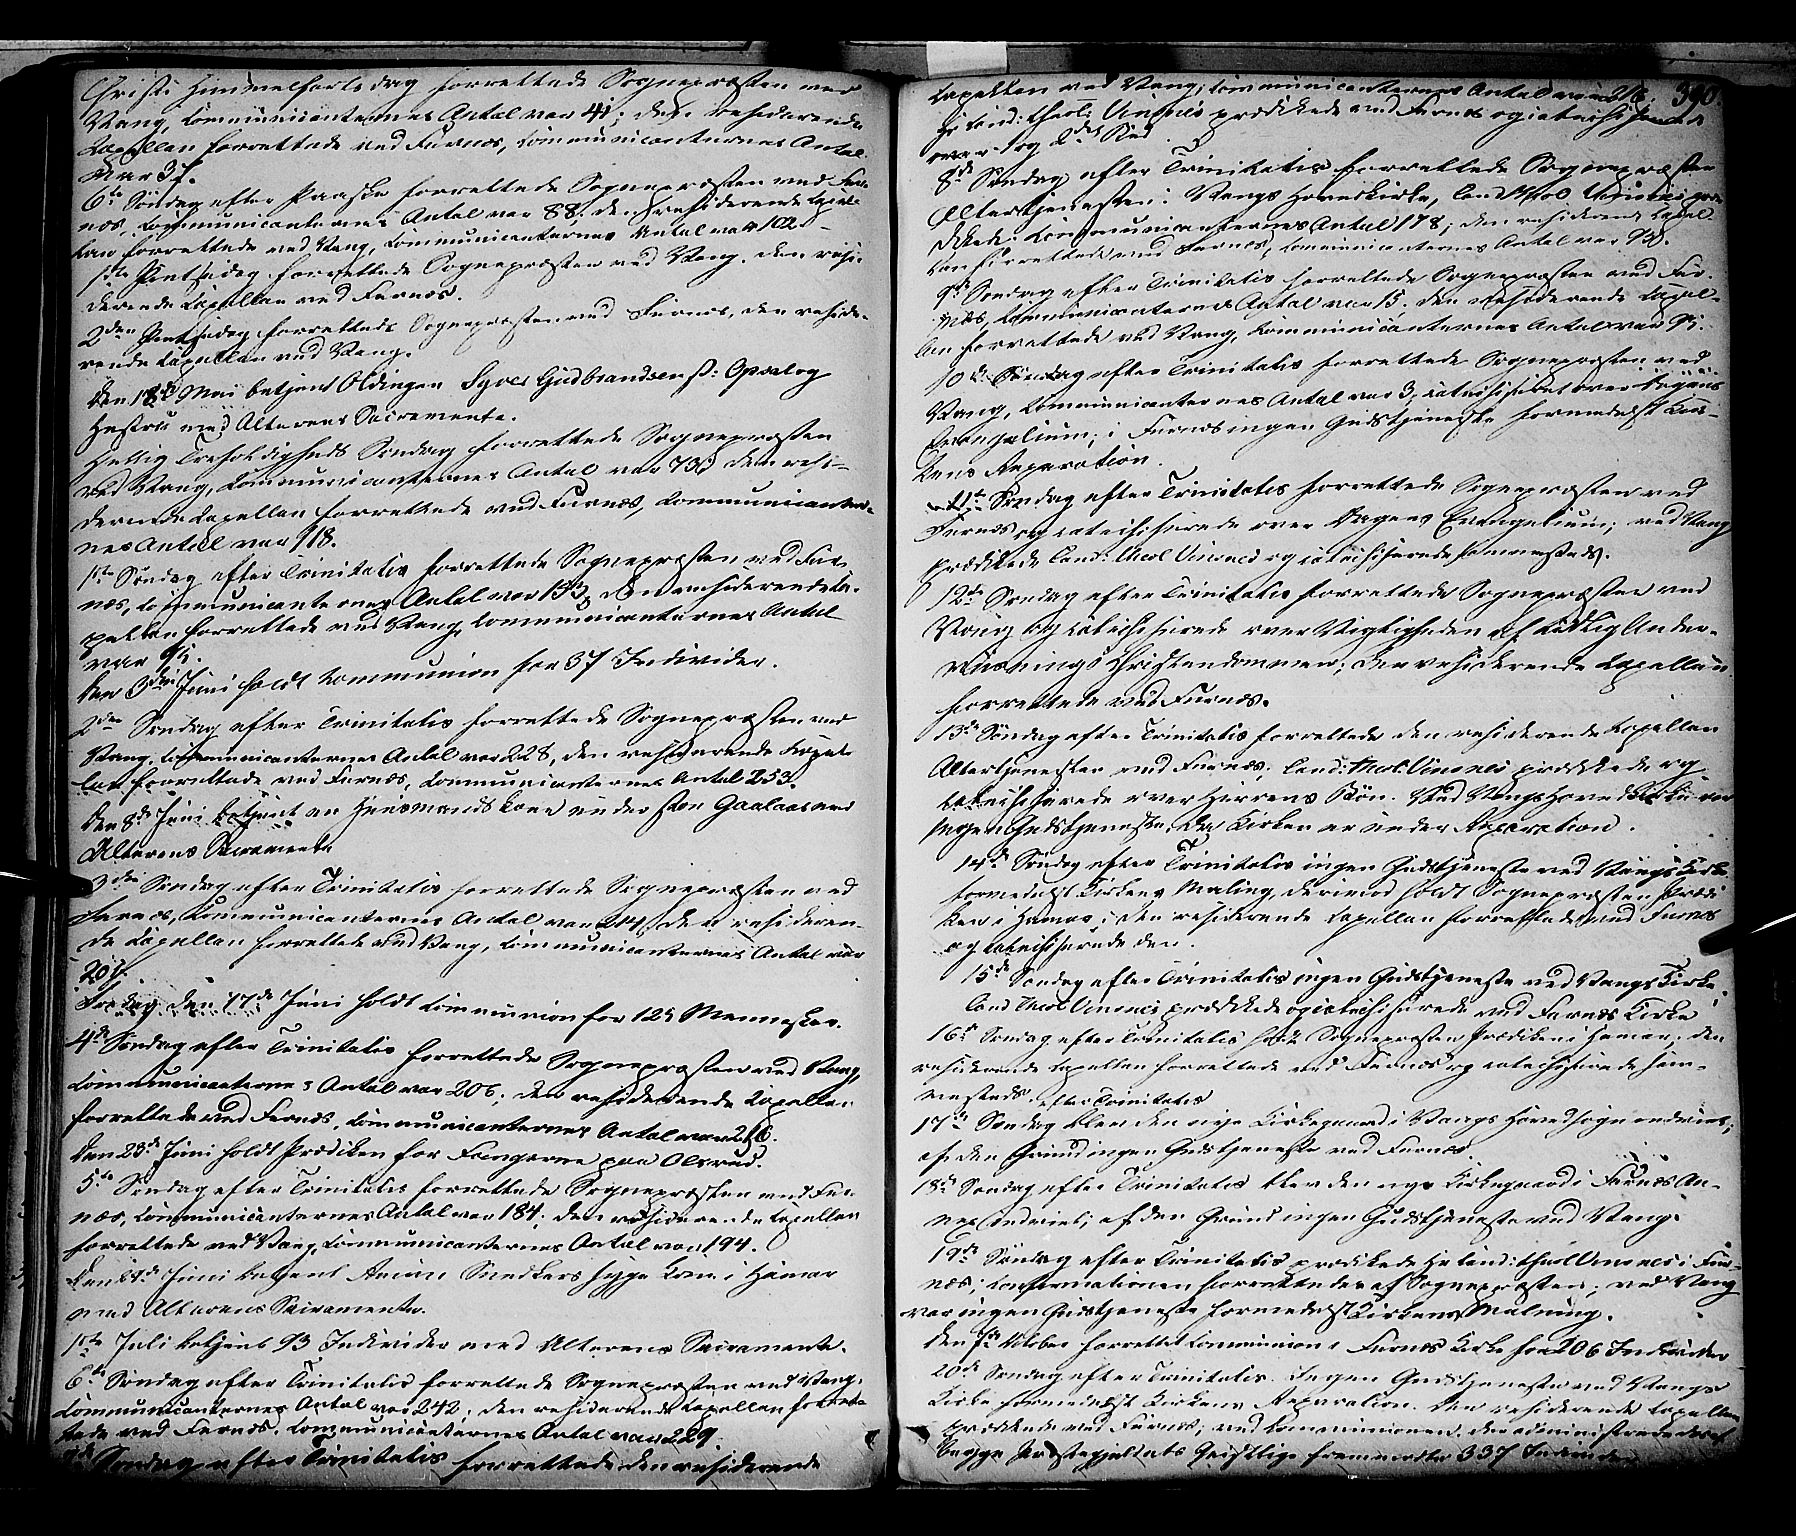 Christi Himmelfartsdag forrettede Sognepræsten ved
Vang, Communicanternes Antal var 41; den residerende
Capellan forrettede ved Furnæs, Communicanternes Antal
var 37.
6te Søndag efter Paaske forrettede Sognepræsten ved Fur-
næs, Communicanternes Antal var 88; den residerende Capel-
lan forrettede ved Vang, Communicanternes Antal var 102.
1ste Pintsedag forrettede Sognepræsten ved Vang, den resi-
derende Capellan ved Furnæs.
2den Pintsedag forrettede Sognepræsten ved Furnæs, den reside-
rende Capellan ved Vang.
Den 18de Mai betjent Oldingen Syver Gudbrandsen p: Opsalog
Hustru med Alterens Sacramente.
Hellig Trefoldigheds Søndag forrettede Sognepræsten
ved Vang, Communicanternes Antal var 73; den resi-
derende Capellan forrettede ved Furnæs, Communicanter-
nes Antal var 118.
1ste Søndag efter Trinitatis forrettede Sognepræsten ved Fur-
næs, Communicanternes Antal var 153; den residerende Ca-
pellan forrettede ved Vang, Communicanternes Antal
var
Den 3die Juni holdt Communion for 37 Individer.
2den Søndag efter Trinitatis forrettede Sognepræsten ved
Vang, Communicanternes Antal var 228, den residerende Capel-
lan forrettede ved Furnæs, Communicanternes Antal 253.
Den 8de Juni betjent en Huusmands Kone under Gaalaas med
Alterens Sacramente
3die Søndag efter Trinitatis forrettede Sognepræsten ved
Furnæs, Communicanternes Antal var 244, den resideren-
de Capellan forrettede ved Vang, Communicanternes Antal var
Fredag den 17de Juni holdt Communion for 125 Mennesker.
4de Søndag efter Trinitatis forrettede Sognepræsten ved Vang,
Communicanternes Antal var 206; den residerende Capellan
forrettede ved Furnæs, Communicanternes Antal var 216.
Den 23de Juni holdt Prædiken for Fangerne paa Olsrud.
5te Søndag efter Trinitatis forrettede Sognepræsten ved Fur-
næs, Communicanternes Antal var 184; den residerende Capellan
forrettede ved Vang, Communicanternes Antal var 194.
Den Juni betjent Snedkers syge Kone i Hamar
med Alterens Sacramente.
1ste Juli betjent 93 Individer med Alterens Sacramente.
6te Søndag efter Trinitatis forrettede Sognepræsten ved Vang,
Communicanternes Antal var 242; den residerende Capellan forret-
tede ved Furnæs, Communicanternes Antal var 229.
Søndag efter Trinitatis forrettede den residerende
390
Capellan ved Vang; Communicanternes Antal var 216;
Hr Cand: theol: Vinsnes prædikede ved Furnæs og catechiserede
over
8de Søndag efter Trinitatis forrettede Sognepræsten
Altertjenesten i Vangs Hovedkirke, Cand theol Vinsnes præ-
dikede. Communicanternes Antal 178; den residerende Capel-
lan forrettede ved Furnæs, Communicanternes Antal var 90.
9de Søndag efter Trinitatis forrettede Sognepræsten ved Fur-
næs, Communicanternes Antal var 15; den residerende Capel-
lan forrettede ved Vang, Communicanternes Antal var 95.
10de Søndag efter Trinitatis forrettede Sognepræsten ved
Vang, Communicanternes Antal var 3; catechiseret over Dagens
Evangelium; i Furnæs ingen Gudstjeneste formedelst Kir-
kens Reparation.
11te Søndag efter Trinitatis forrettede Sognepræsten ved
Furnæs og catechiserede over Dagens Evangelium; ved Vang
prædikede Cand: theol Vinsnes og catechiserede sammesteds.
12te Søndag efter Trinitatis forrettede Sognepræsten ved
Vang og catechiserede over Vigtigheden af tidlig Under-
viisning i Christendommen; den residerende Capellan
forrettede ved Furnæs.
13de Søndag efter Trinitatis forrettede den residerende Capellan
Altertjenesten ved Furnæs, Cand: theol. Vinsnes prædikede og
catechiserede over Herrens Bøn. Ved Vangs Hovedkirke var
ingen Gudstjeneste, da Kirken er under Reparation.
14de Søndag efter Trinitatis ingen Gudstjeneste ved Vangs Kirke
formedelst Kirkens Maling, derimod holdt Sognepræsten Prædi-
ken i Hamar; den residerende Capellan forrettede ved Furnæs
og catechiserede den.
15de Søndag efter Trinitatis ingen Gudstjeneste ved Vangs Kirke.
Cand theol Vinsnes prædikede og catechiserede ved Furnæs Kirke
16de Søndag efter Trinitatis holdt Sognepræsten Prædiken i Hamar; den
residerende Capellan forrettede ved Furnæs og catechiserede sam-
mesteds.
17de Søndag efter Trinitatis blev den nye Kirkegaard i Vangs Hovedsogn indviet;
af den Grund ingen Gudstjeneste ved Furnæs.
18de Søndag efter Trinitatis blev den nye Kirkegaard i Furnæs An-
nex indviet; af den Grund ingen Gudstjeneste ved Vang.
19de Søndag efter Trinitatis prædikede Hr Cand: theol Vinsnes i Fur-
næs; Confirmationen forrettedes af Sognepræsten; ved Vang
var ingen Gudstjeneste formedelst Kirkens Malning.
Den 7de October forrettet Communion i Furnæs Kirke for 206 Individer
20de Søndag efter Trinitatis. Ingen Gudstjeneste ved Vangs
Kirke formedelst Kirkens Reparation. Den residerende Capellan
prædikede ved Furnæs; ved Communionen, der administreredes af
begge Præstegjeldets Geistlige fremmødte 337 Individer